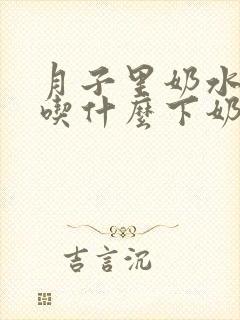 月子里奶水
喫什麼下奶
吉言沉